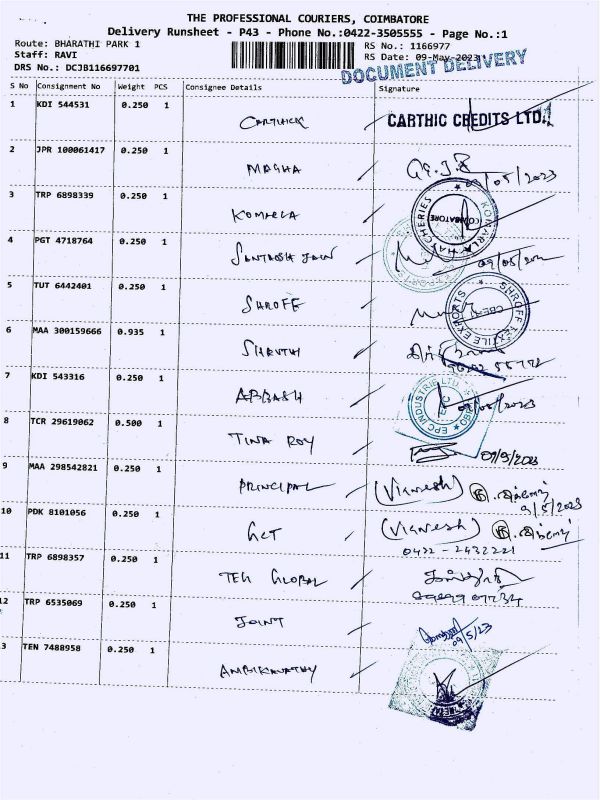 THE PROFESSIONAL COURIERS, COIMBATORE
Delivery Runsheet - P43 - Phone No.:0422-3505555 - Page No.:1
Route: BHARATHI PARK 1 RS No.: 1166977
Staff: RAVI RS Date: 09-May-2023
DRS No.: DCJB116697701 DOCUMENT DELIVERY
S No Consignment No Weight PCS Consignee Details Signature
1 KDI 544531 0.250 1 CARTHICK CARTHIC CREDITS LTD.,
2 JPR 100061417 0.250 1 MAGHA 09/05/2023
3 TRP 6898339 0.250 1 KOMARLA KOMARLA HATCHERIES COIMBATORE
4 PGT 4718764 0.250 1 SANTHOSH JAIN
5 TUT 6442401 0.250 1 SHROFF SHROFF TEXTILE EXPORTS CBE
6 MAA 300159666 0.935 1 SHRUTHI
7 KDI 543316 0.250 1 ABBASH EPC INDUSTRIE LTD. 09/05/2023
8 TCR 29619062 0.500 1 TINA ROY 09/5/2023
9 MAA 298542821 0.250 1 PRINCIPAL (Vignesh) 9/5/2023
10 PDK 8101056 0.250 1 GCT (Vignesh)
0422 - 2432221
11 TRP 6898357 0.250 1 TEH GLOBAL
12 TRP 6535069 0.250 1 JOINT 09/5/23
3 TEN 7488958 0.250 1 AMBIKAVATHY